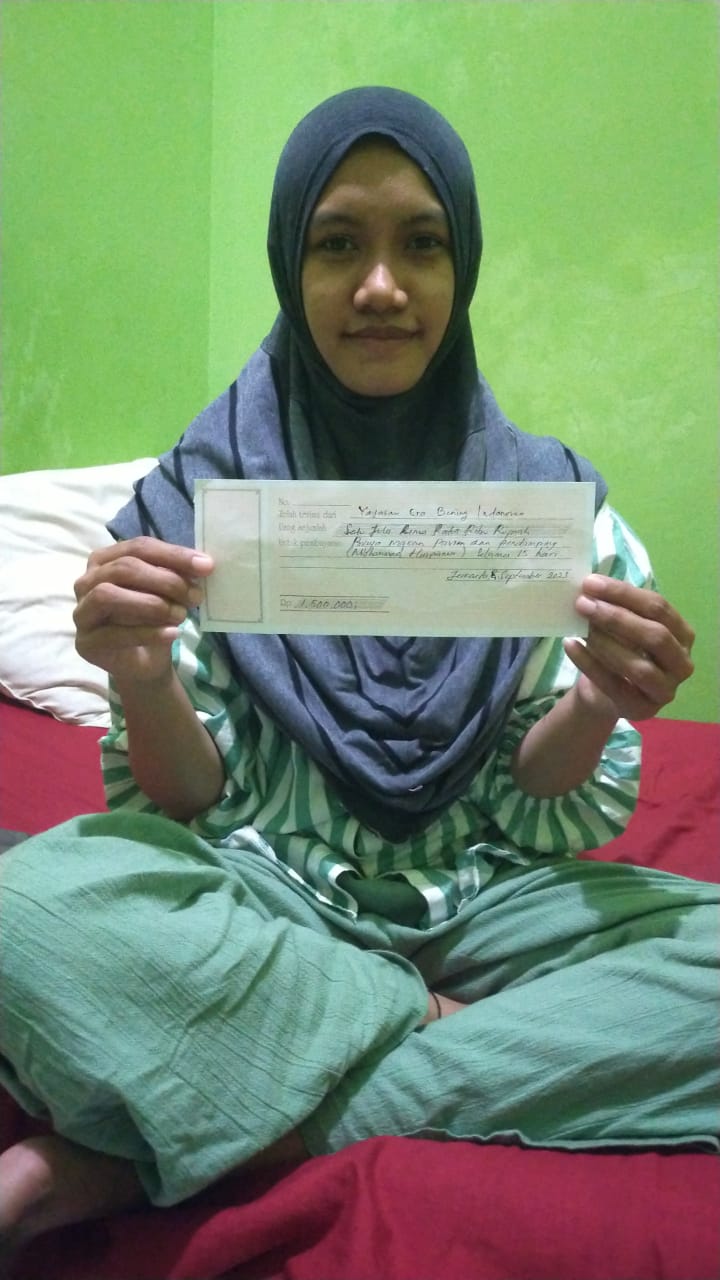 No.
Telah terima dari Yayasan Era Bening Indonesia
Uang sejumlah Satu Juta Lima Ratus Ribu Rupiah
Untuk pembayaran Biaya makan Pasien dan pendamping
(Muhammad ) Selama 15 hari
September 2023
Rp. 1.500.000,-